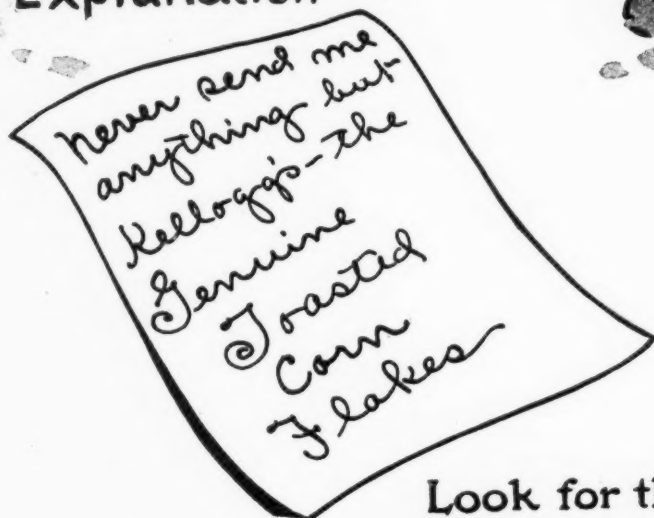 Explanation
never send me
anything but
Kellogg's - the
Genuine
Toasted
Corn
Flakes
Look for th